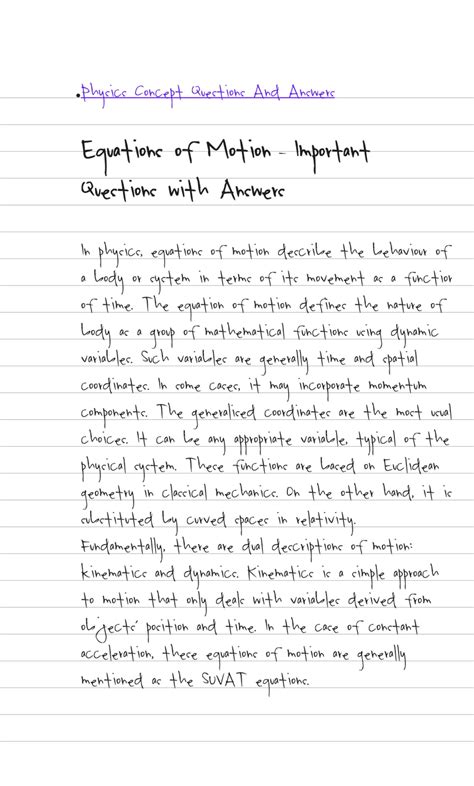 • Physics Concept Questions And Answers
Equations of Motion - Important
Questions with Answers
In physics, equations of motion describe the behaviour of
a body or system in terms of its movement as a function
of time. The equation of motion defines the nature of
body as a group of mathematical functions using dynamic
variables. Such variables are generally time and spatial
coordinates. In some cases, it may incorporate momentum
components. The generalised coordinates are the most usual
choices. It can be any appropriate variable, typical of the
physical system. These functions are based on Euclidean
geometry in classical mechanics. On the other hand, it is
substituted by curved spaces in relativity.
Fundamentally, there are dual descriptions of motion:
kinematics and dynamics. Kinematics is a simple approach
to motion that only deals with variables derived from
objects' position and time. In the case of constant
acceleration, these equations of motion are generally
mentioned as the SUVAT equations.